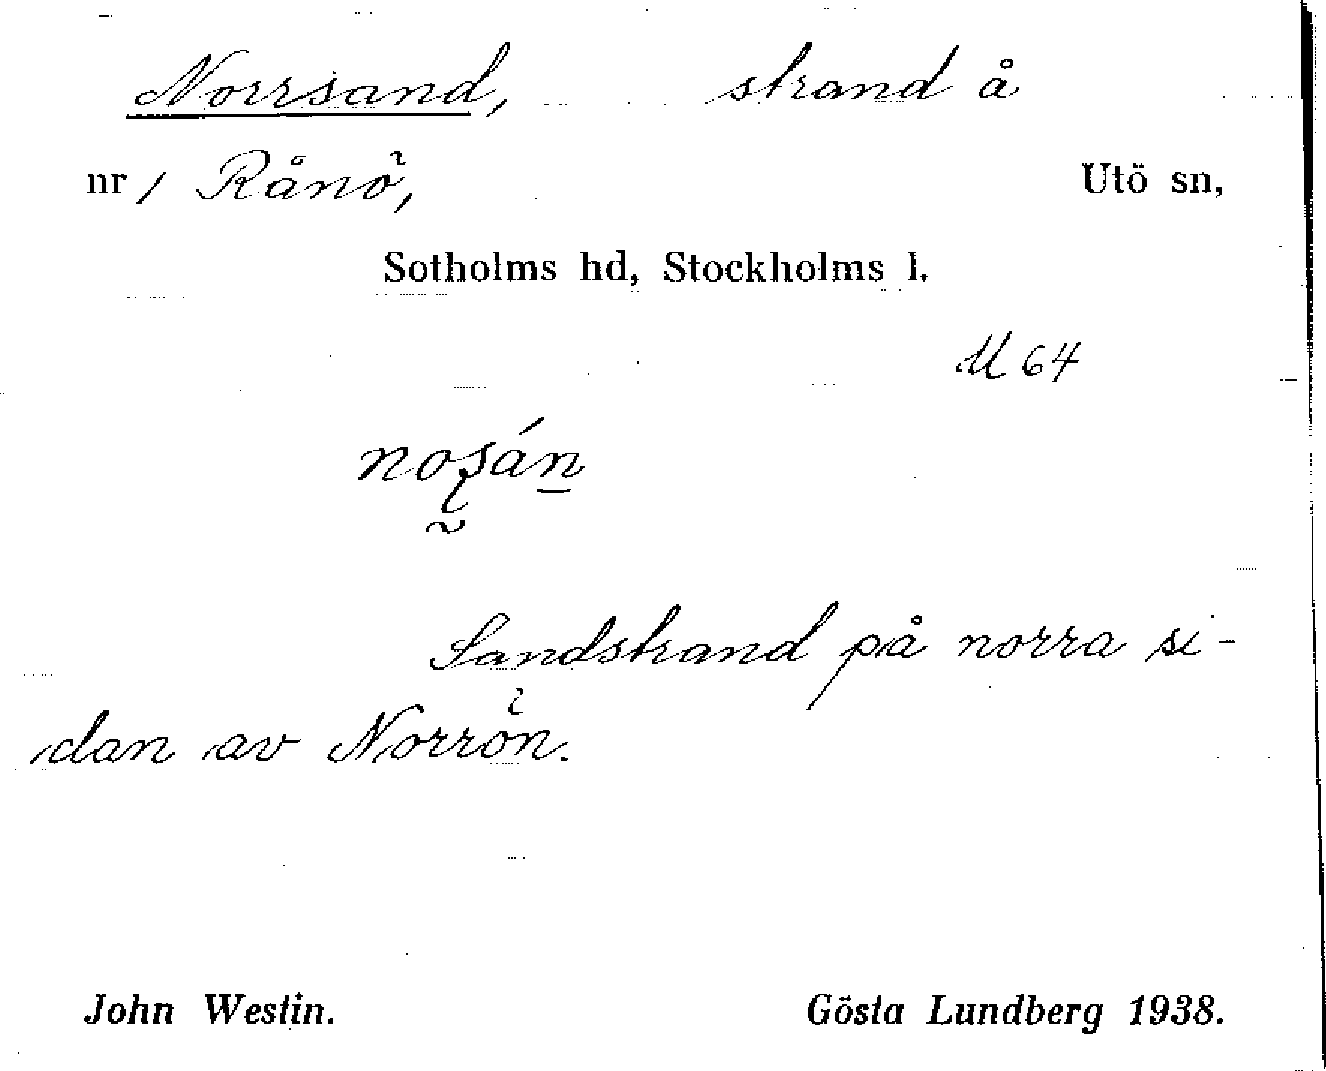 Norrsand, strand å
nr / Rånö, Utö sn,
Sotholms hd, Stockholms l.
U 64
Sandstrand på norra si-
dan av Norrön.
John Westin. Gösta Lundberg 1938.